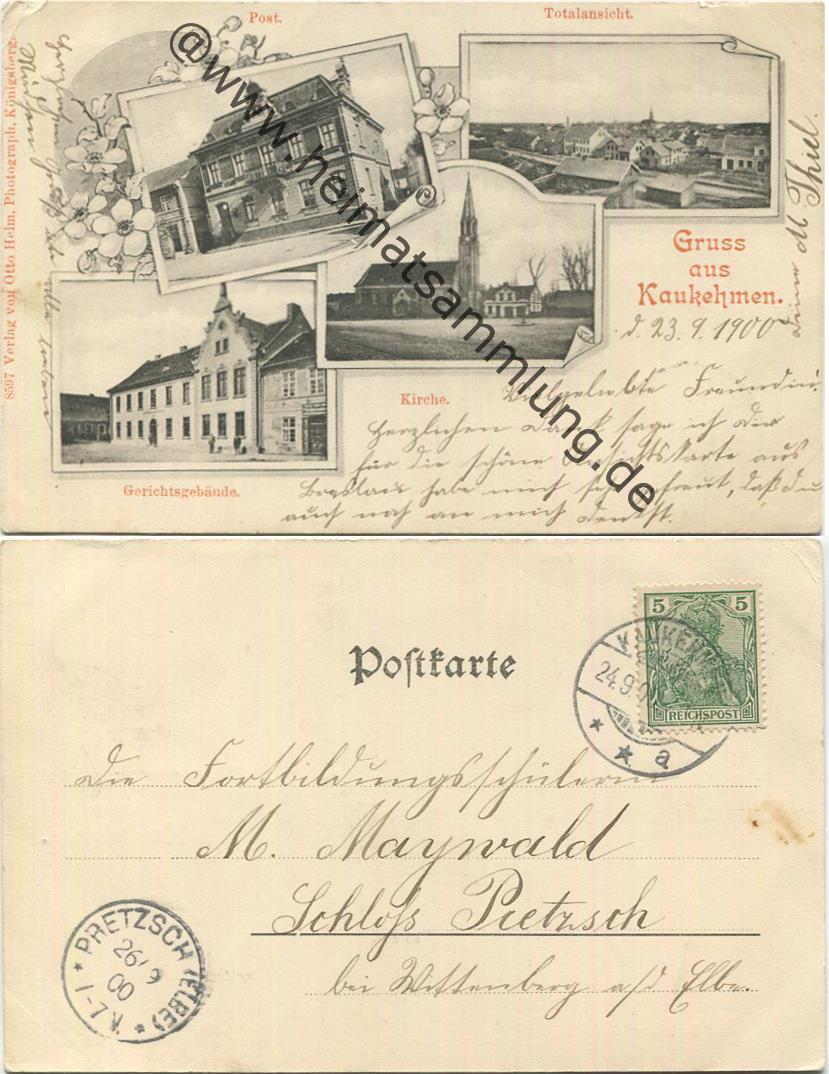 Post.
Totalansicht.
8597 Verlag von Otto Helm, Photograph, Königsberg.
Gruss
aus
Kaukehmen.
d. 23. 9. 1900
Kirche.
Gerichtsgebäude.
Vielgeliebte Freundin.
Herzlichen Dank sage ich Dir
für die schöne Ansichtskarte aus
Breslau habe mich sehr gefreut, daß du
auch noch an mich denkst.
Deine M Thiel.
@www.heimatsammlung.de
Postkarte
5 5
REICHSPOST
KAUKEHMEN
24.9.
* * a
Die Fortbildungsschülerin
M. Maywald
Schloss Pretzsch
bei Wittenberg a/d Elbe.
* PRETZSCH (ELBE) *
26/9
00